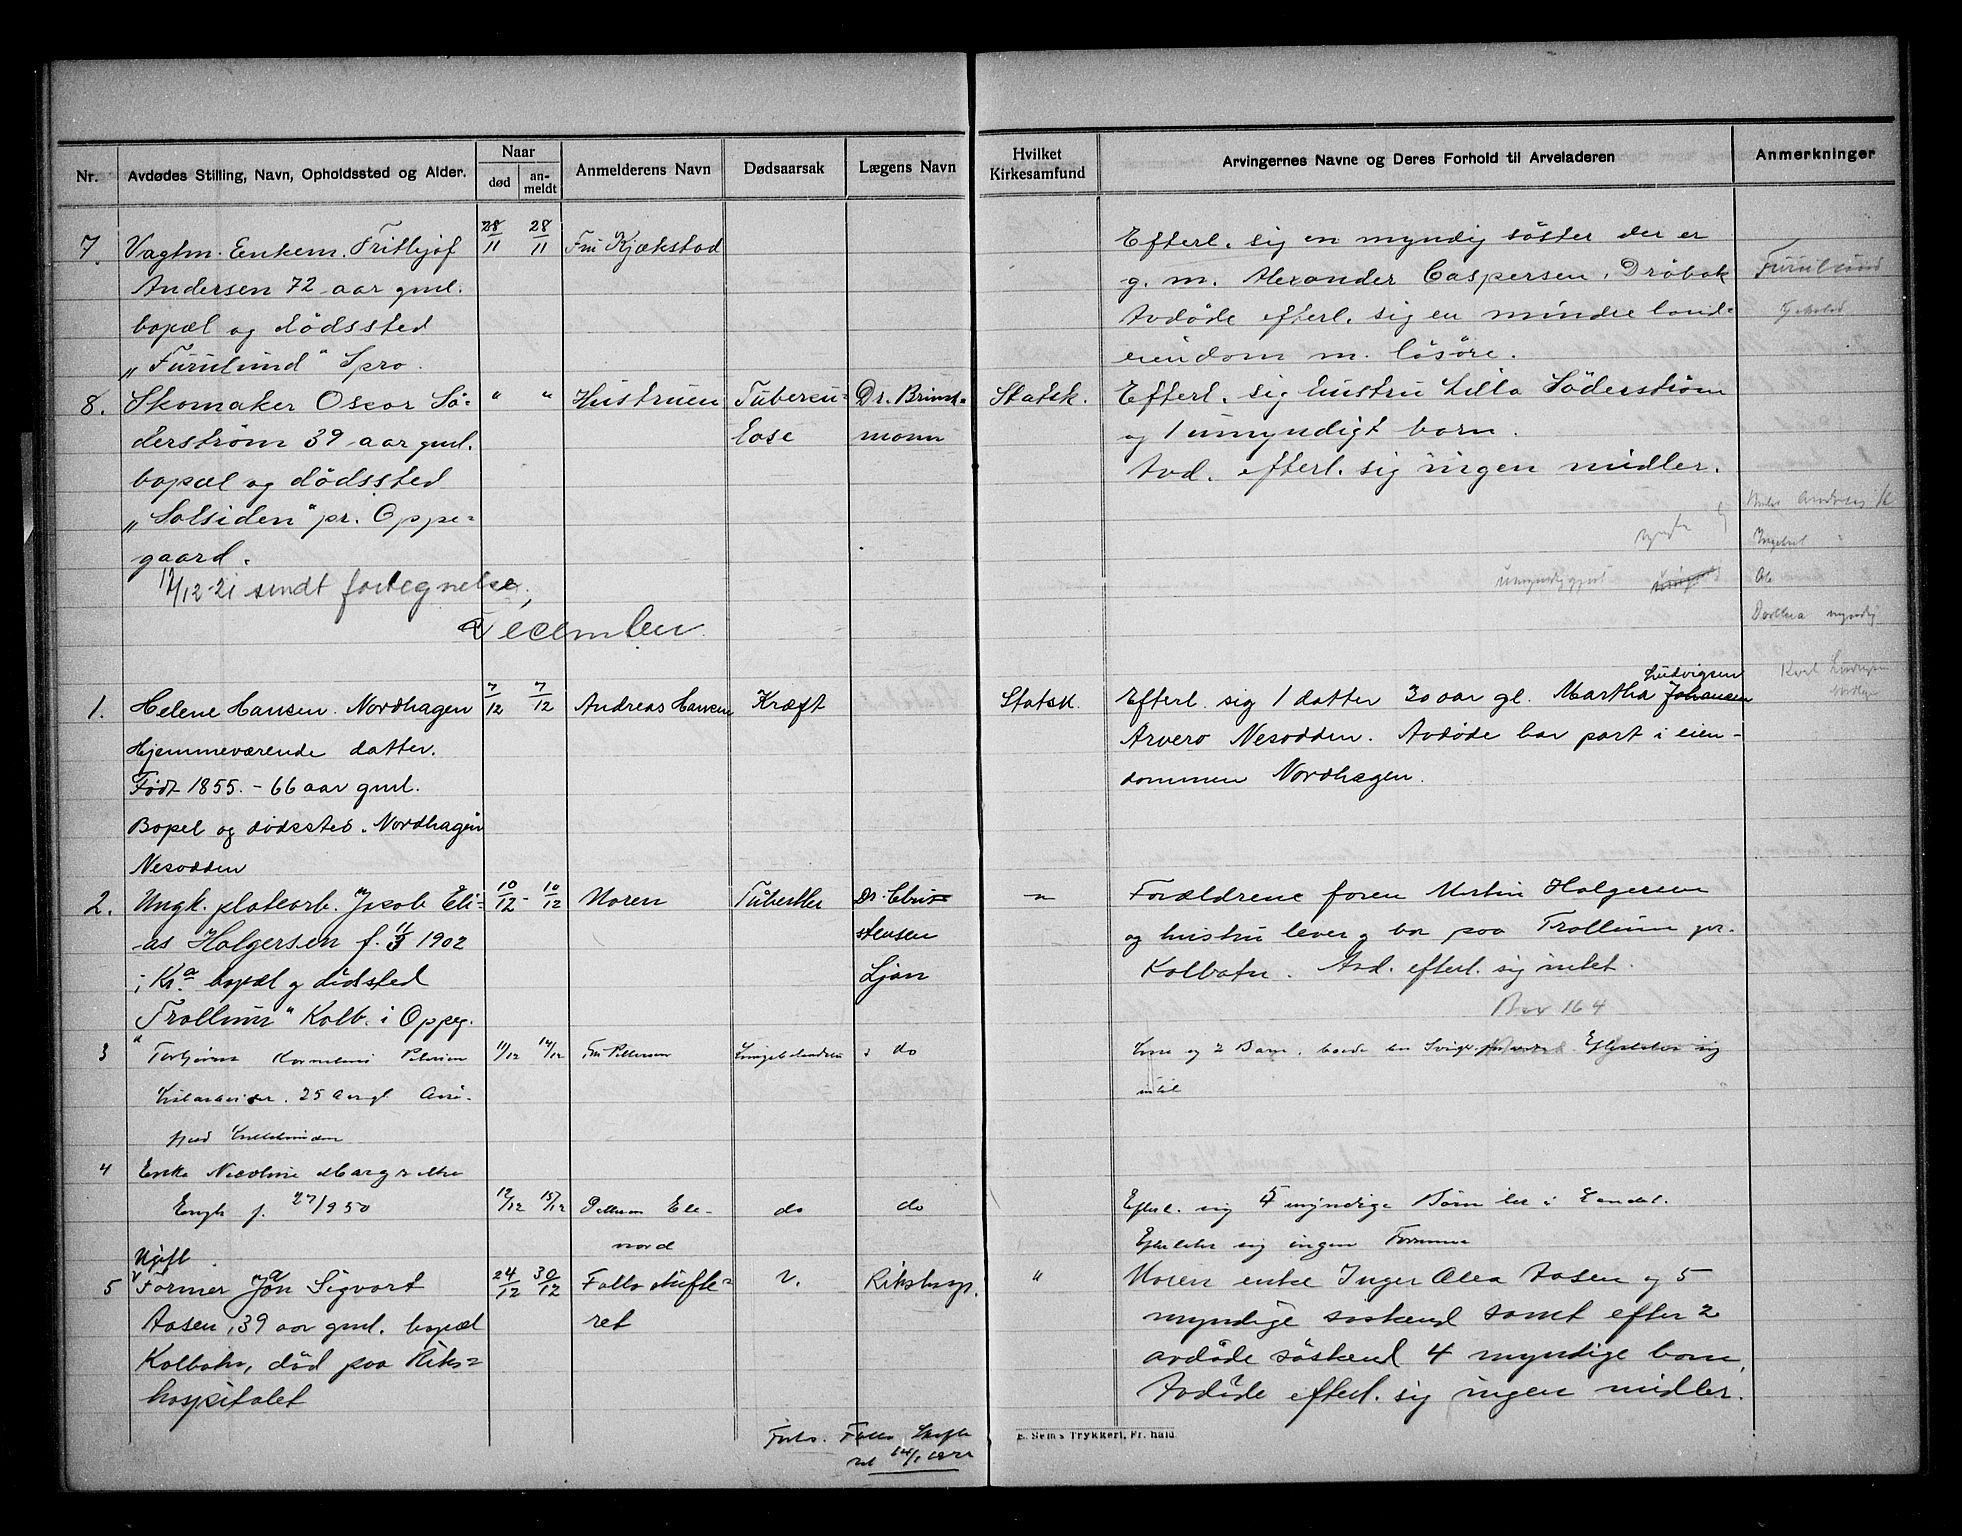 Nr.
Avdødes Stilling, Navn, Opholdssted og Alder.
Naar
død
an-
meldt
Anmelderens Navn
Dødsaarsak
Lægens Navn
Hvilket
Kirkesamfund
Arvingernes Navne og Deres Forhold til Arveladeren
Anmerkninger
7. Vagtm. Enkem. Frithjof
Andersen 72 aar gml.
bopæl og dødssted
„Furulund" Spro.
28/11 28/11
Fru Kjækstad
Efterl. sig en myndig søster der er
g. m. Alexander Caspersen, Drøbak
Avdøde efterl. sig en mindre land-
eiendom m. løsøre.
Furulund
8. Skomaker Oscar Sø-
derstrøm 39 aar gml.
bopæl og dødssted
„Solsiden" pr. Oppe-
gaard.
" "
Hustruen
Tubercu-
lose
Dr. Brinch-
mann
Statsk.
Efterl. sig hustru Lilla Söderstrøm
og 1 umyndigt barn.
Avd. efterl. sig ingen midler.
Ole
Dorthea myndig
Karl Ludvigsen
17/12-21 sendt fortegnelse,
December
1. Helene Hansen. Nordhagen
Hjemmeværende datter.
Født 1855. - 66 aar gml.
Bopel og dødssted. Nordhagen
Nesodden
7/12 7/12
Andreas Hansen
Kræft
Statsk.
Ludvigsen
Efterl. sig 1 datter 30 aar gl. Martha Johansen
Arvero Nesodden. Avdøde har part i eien-
dommen Nordhagen.
2. Ungk. platearb. Jacob Eli-
as Holgersen f. 11/3 1902
i Kra bopæl og dødsted
„Trollium" Kolb. i Oppeg.
10/12 - 10/12
Moren
Dr. Chri-
stensen
Ljan
"
Forældrene faren Martin Holgersen
og hustru lever og bor paa Trollium pr.
Kolbotn. Avd. efterl. sig intet.
Box 164
3
Petersen
25 Aar gl
11/12 14/12
Fru Pettersen
do
og 2 Barn, Efterlater sig
intet
4 Enke Nicoline Margrethe
12/12 15/12
Pettersen Elle-
do
do
Efterl. sig 5 myndige Børn
Efterlater sig ingen Formue
Ugift
5 Former Johan Sigvart
Aasen, 39 aar gml. bopæl
Kolbotn, død paa Riks-
hospitalet
24/12 30/12
Follo skifte-
ret
Rikshosp.
"
Moren enke Inger Alea Aasen og 5
myndige søskend samt efter 2
avdøde søskend 4 myndige barn.
Avdøde efterl. sig ingen midler.
Follo Skifte
ret
E. Sem's Trykkeri, Fr.hald.